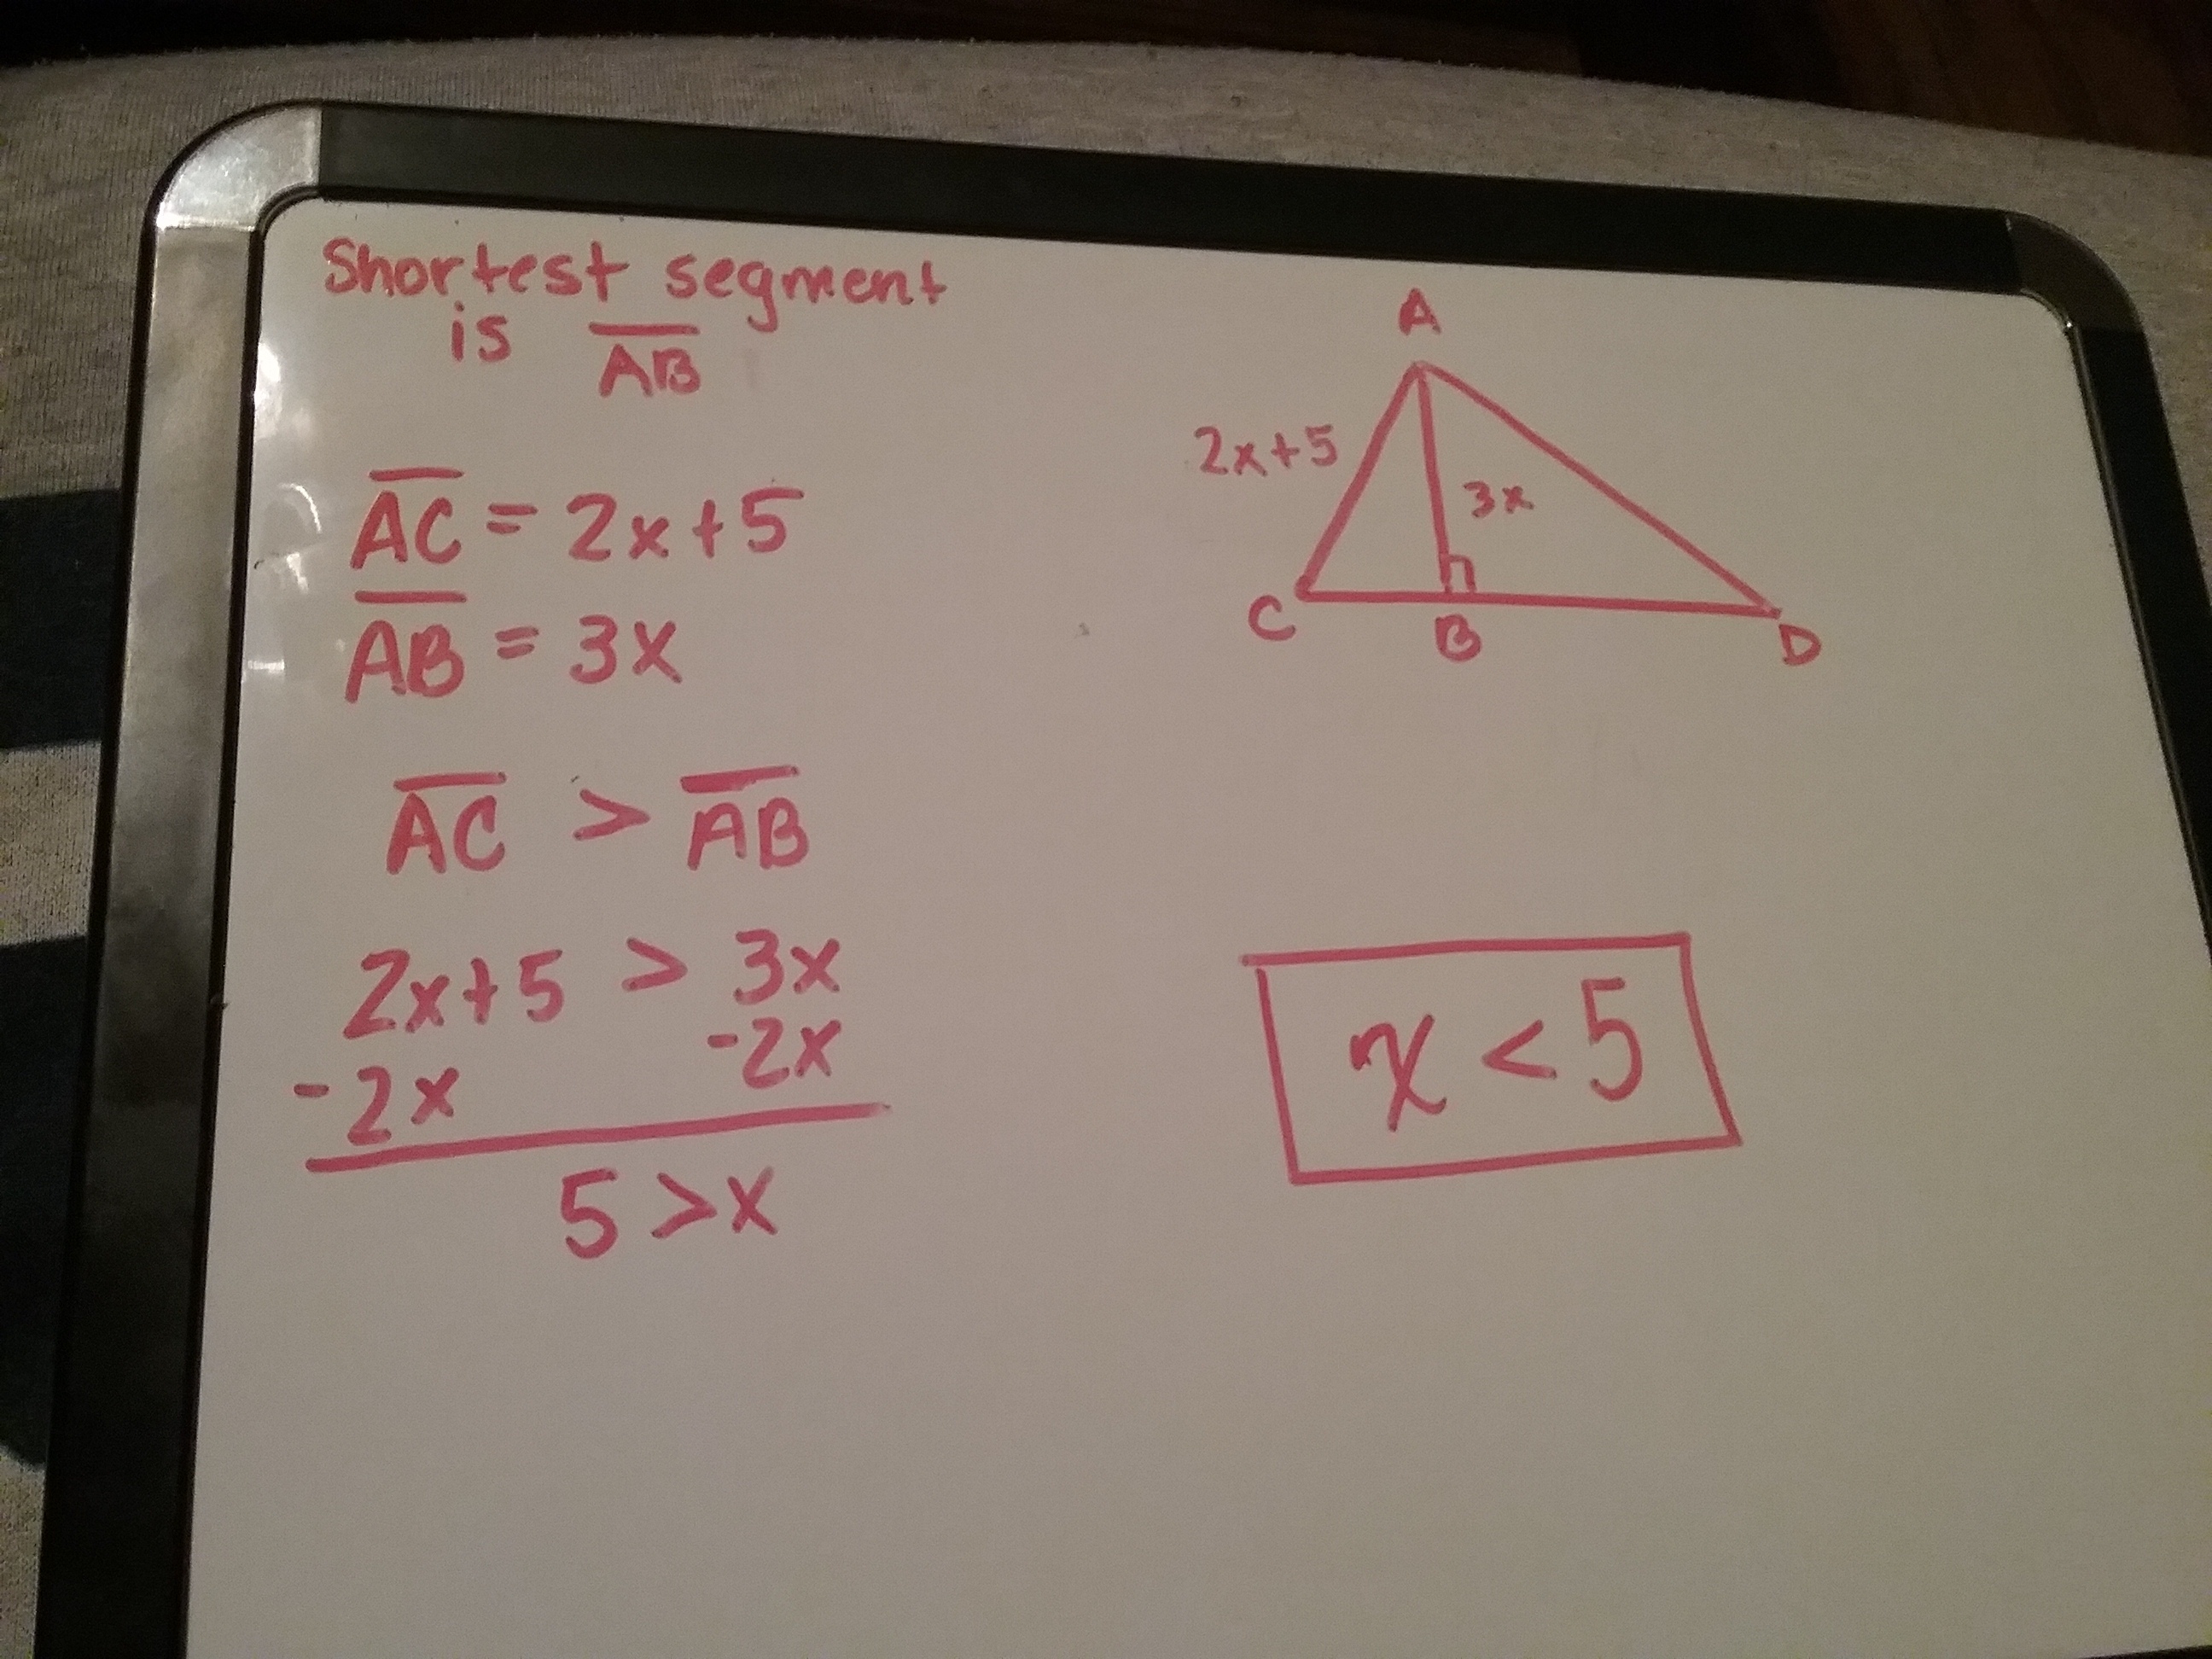 Shortest segment
is A̅B̅
A̅C̅ = 2x+5
A̅B̅ = 3x
A̅C̅ > A̅B̅
2x+5 > 3x
-2x -2x
5 > x
A
2x+5
3x
C B D
x < 5